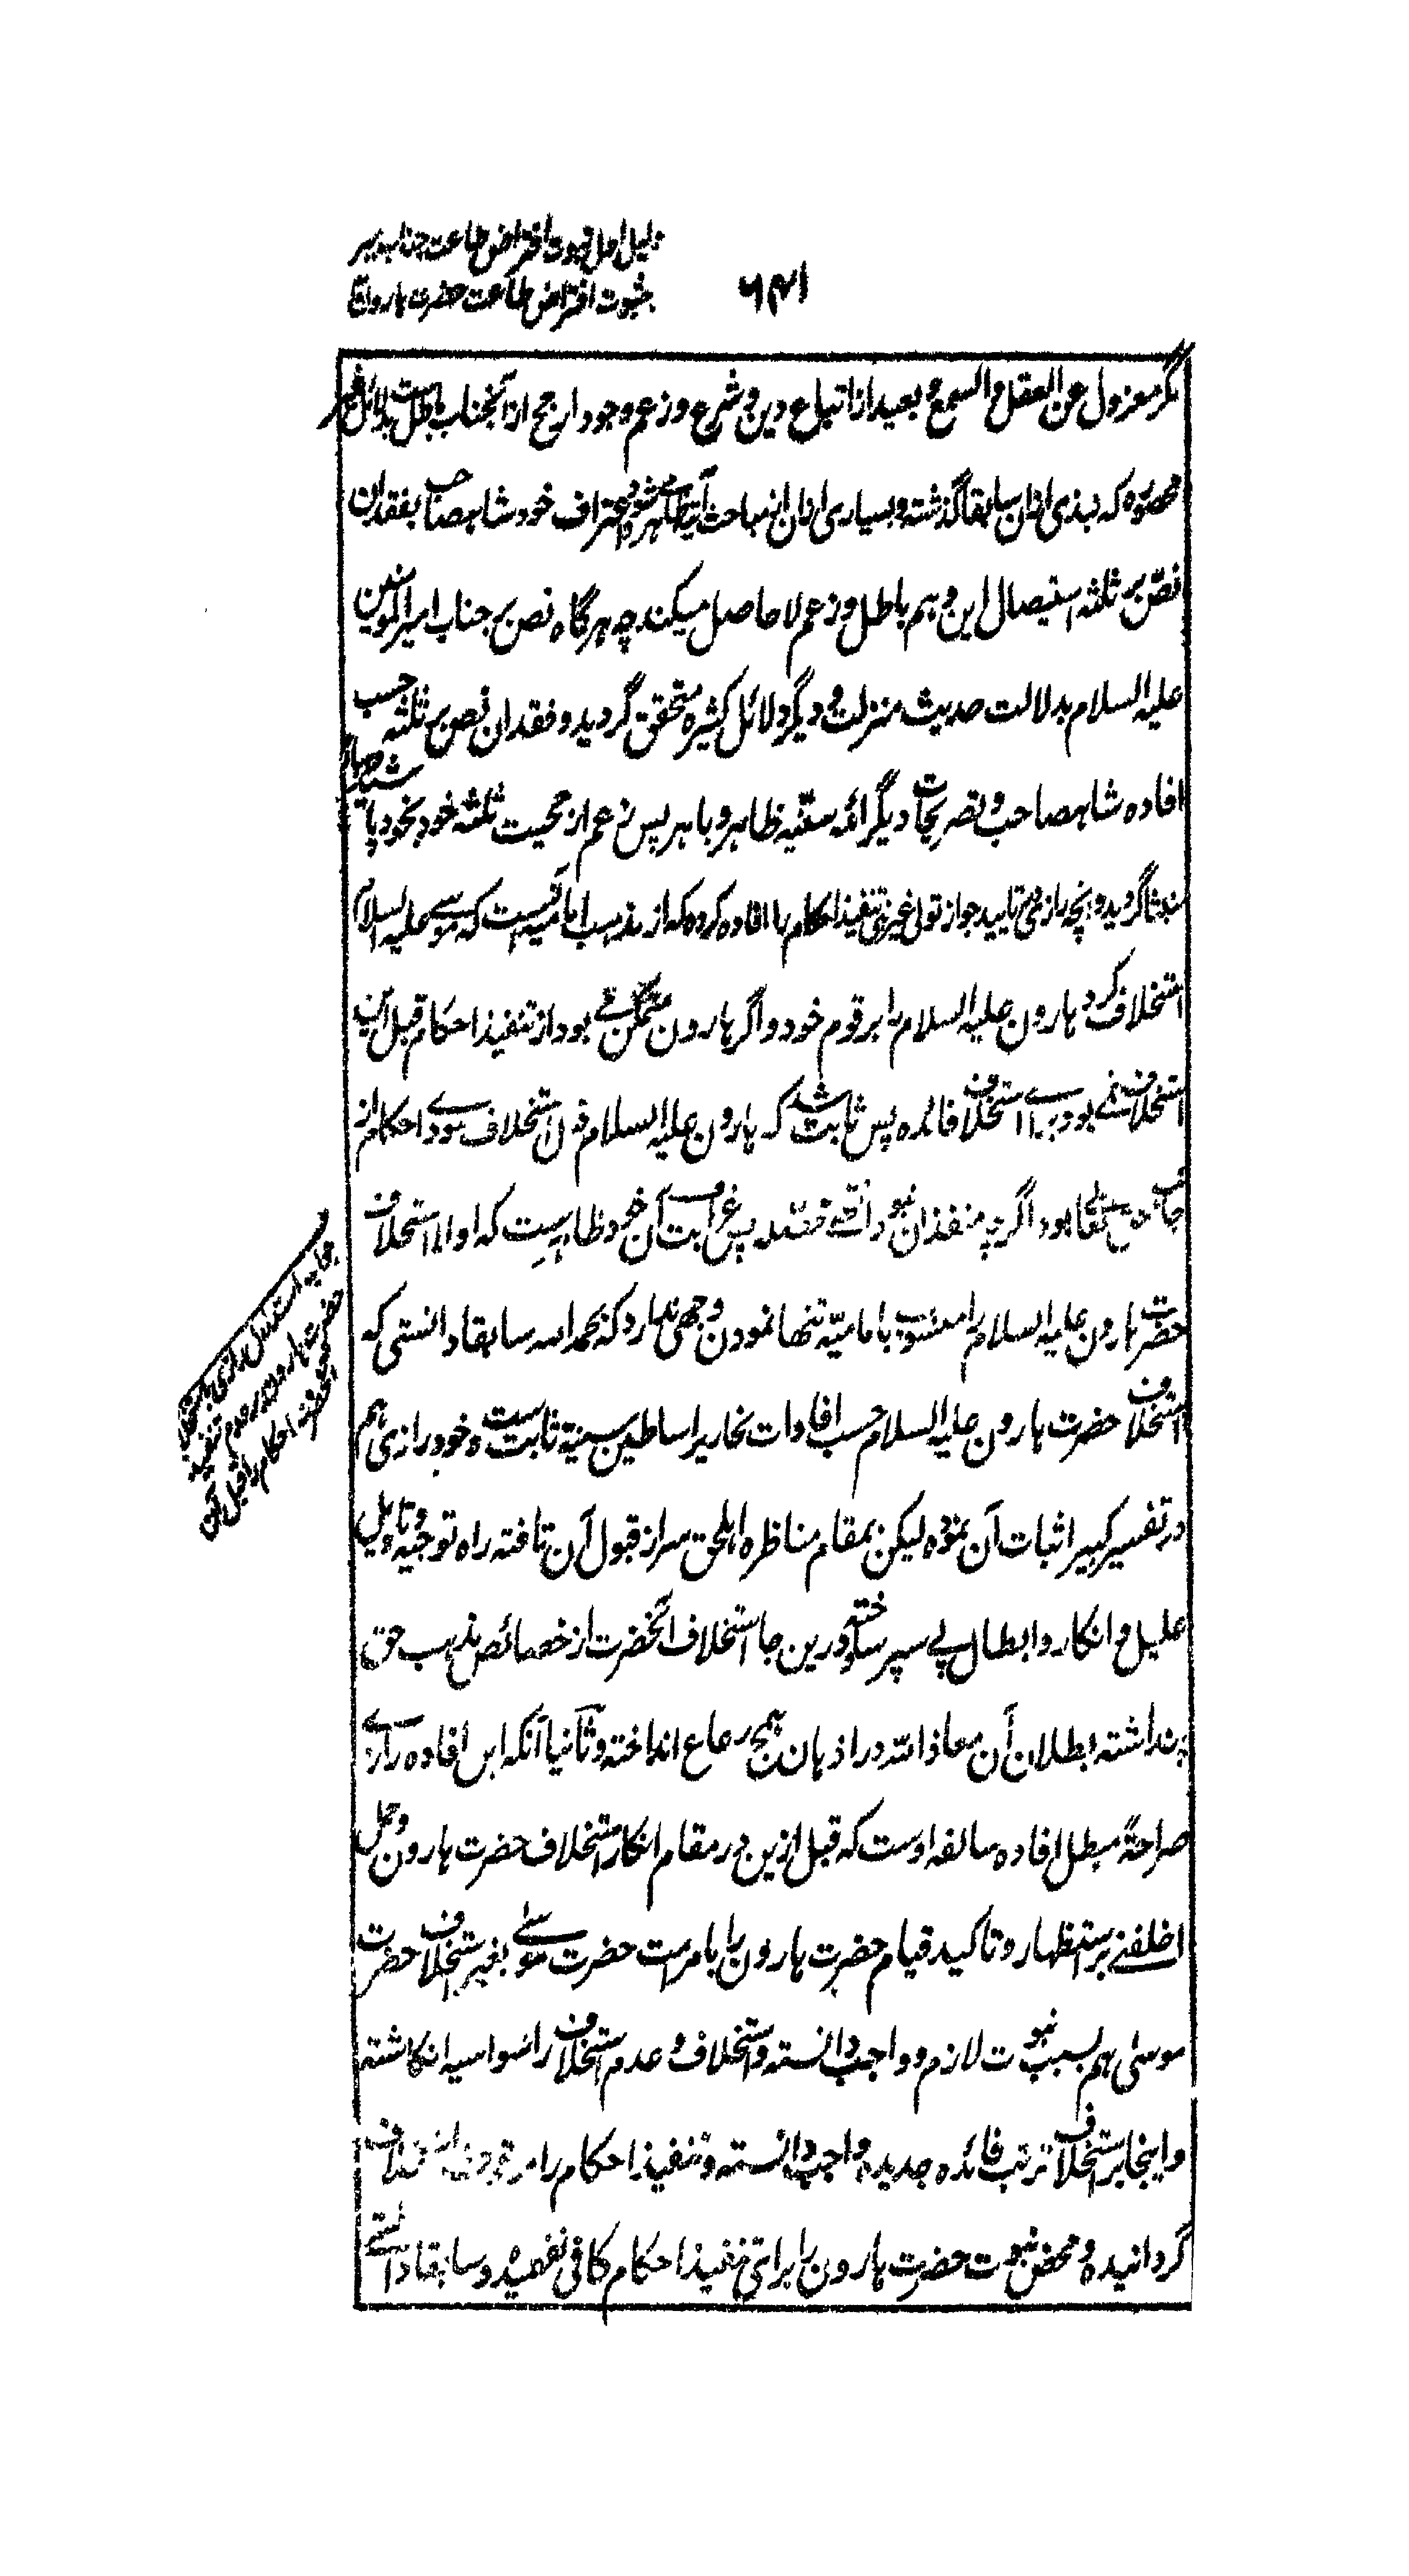 دلیل اول ثبوت افتراض طاعت جناب امیر
بثبوت افتراض طاعت حضرت هارون
۶۴۱
مگر معزول عن العقل و السمع و بعید از اتباع دین و شرع و زعم وجود ارجح از آنجناب باطل ست بدلائل غیر
محصوره که نبذی ازان سابقا گذشته و بسیاری ازان از مباحث آتیه ظاهر میشود و اعتراف خود شاهصاحب بفقدان
نص بر ثلثه استیصال این وهم باطل و زعم لا حاصل میکند چه هرگاه نص بر جناب امیر المومنین
علیه السلام بدلالت حدیث منزلت و دیگر دلائل کثیره متحقق گردید و فقدان نص بر ثلثه حسب
افاده شاهصاحب و تصریحات دیگر ائمه سنیه ظاهر و باهر پس زعم ارجحیت ثلثه خود بخود
گردید و آنچه رازی تایید جواز تولی غیر نبی تنفیذ احکام را افاده کرده که از مذهب امامیه است که موسے علیه السلام
استخلاف کرد هارون علیه السلام را بر قوم خود و اگر هارون متمکن مے بود از تنفیذ احکام قبل این
استخلاف نمے بود براے استخلاف فائده پس ثابت شد که هارون علیه السلام قبل استخلاف مودی احکام از
جانب بود اگرچه منفذ آن نبود انتهے پس غرابت آن خود ظاهرست که اولا استخلاف
حضرت هارون علیه السلام را منسوب بامامیه تنها نمودن وجهی ندارد که بحمد الله سابقا دانستی که
استخلاف حضرت هارون علیه السلام حسب افادات نحاریر اساطین سنیه ثابت ست و خود رازی هم
در تفسیر کبیر اثبات آن نموده لیکن بمقام مناظره اهل حق سر از قبول آن تافته راه توجیه و تاویل
علیل و انکار و ابطال پے سپر ساخته و درین جا استخلاف آنحضرت از خصائص مذهب حق
پنداشته بطلان آن معاذ الله در اذهان همج رعاع انداخته و ثانیا آنکه این افاده رازے
صراحةً مبطل افاده سالفه اوست که قبل ازین در مقام انکار استخلاف حضرت هارون و حمل
اخلفنے بر استظهار و تاکید قیام حضرت هارون را بامر امت حضرت موسے بغیر استخلاف حضرت
موسی هم بسبب نبوت لازم و واجب دانسته و استخلاف و عدم استخلاف را سواسیه انگاشته
و اینجا بر استخلاف ترتب فائده جدیده واجب دانسته و تنفیذ احکام را موقوف استخلاف
گردانیده و محض نبوت حضرت هارون را برای تنفیذ احکام کافی نفهمیده و سابقا دانستے
جواب استدلال رازی باستخلاف
حضرت هارون بر عدم تنفیذ
آنحضرت احکام را قبل آن